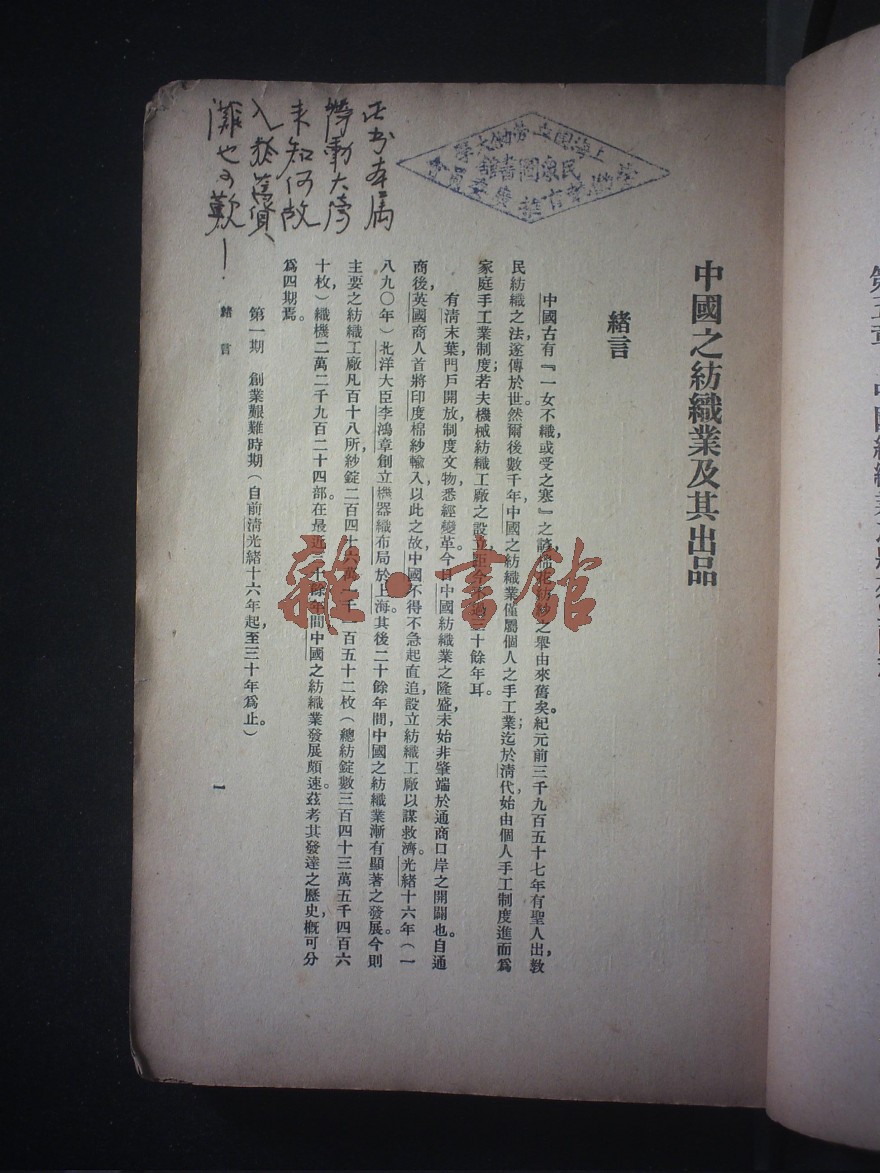 中國之紡織業及其出品
緒言
中國古有『一女不織，或受之寒』之諺，棉花紡紗之舉由來舊矣。紀元前三千九百五十七年有聖人出，教
民紡織之法，遂傳於世。然爾後數千年，中國之紡織業僅屬個人之手工業；迄於清代，始由個人手工制度進而爲
家庭手工業制度；若夫機械紡織工廠之設立，距今不過三十餘年耳。
有清末葉，門戶開放，制度文物，悉經變革。今日中國紡織業之隆盛，未始非肇端於通商口岸之開闢也。自通
商後，英國商人首將印度棉紗輸入，以此之故，中國不得不急起直追，設立紡織工廠以謀救濟。光緒十六年（一
八九〇年）北洋大臣李鴻章創立機器織布局於上海。其後二十餘年間，中國之紡織業漸有顯著之發展。今則
主要之紡織工廠凡百十八所，紗錠二百四十六萬一千 百五十二枚（總紡錠數三百四十三萬五千四百六
十枚）織機二萬二千九百二十四部。在最近三十餘年間，中國之紡織業發展頗速。茲考其發達之歷史，概可分
爲四期焉。
第一期　創業艱難時期（自前清光緒十六年起，至三十年爲止。）
緒言
一
此書本屬
勞動大學
未知何故
入於舊貨
攤也可歎！
上海國立勞動大學
民衆圖書館
勞動教育推廣委員會
雜·書館